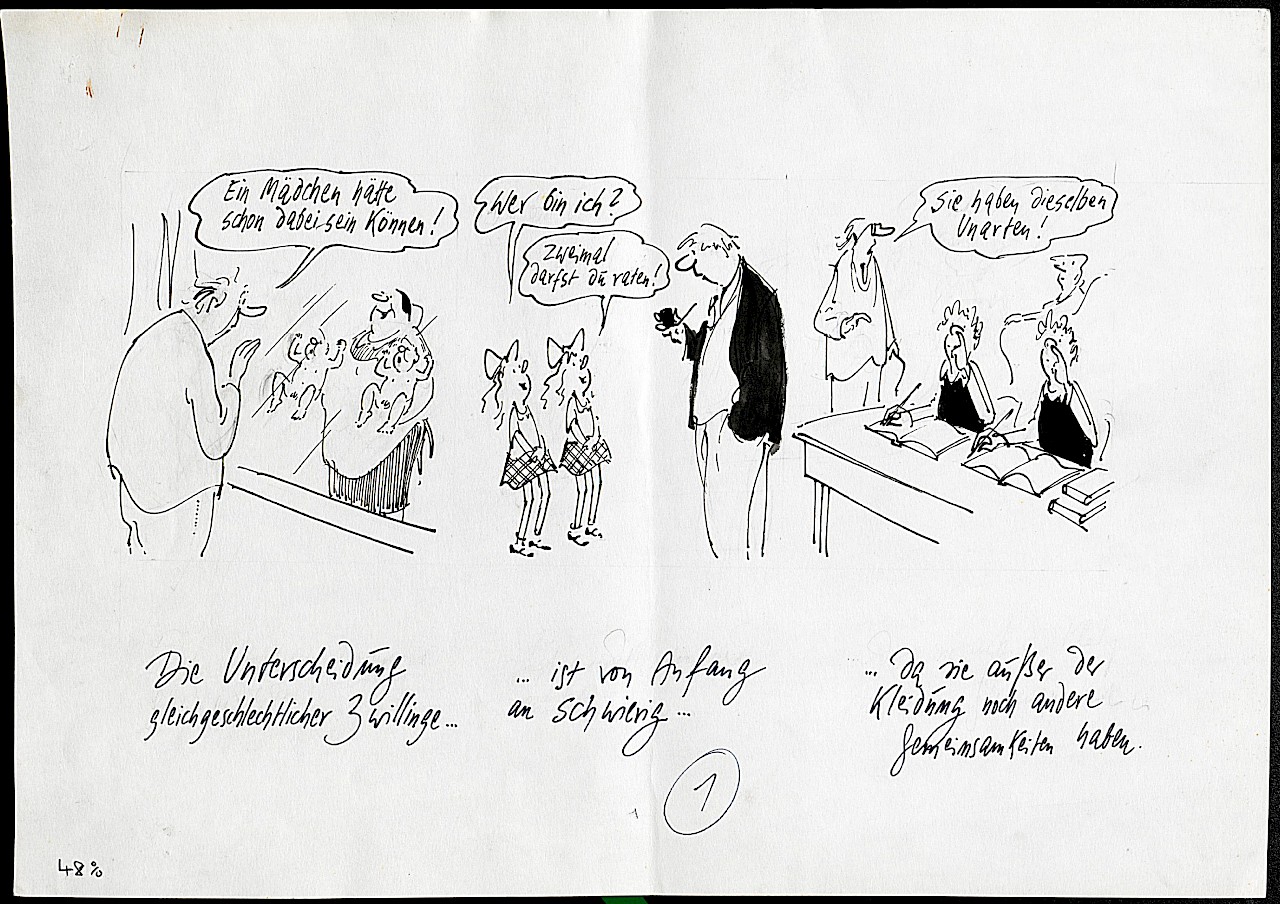 Ein Mädchen hätte
schon dabei sein können!
Wer bin ich?
Zweimal
darfst du raten!
Sie haben dieselben
Unarten!
Die Unterscheidung
gleichgeschlechtlicher Zwillinge...
... ist von Anfang
an schwierig...
... da sie außer der
Kleidung noch andere
Gemeinsamkeiten haben.
1
48%